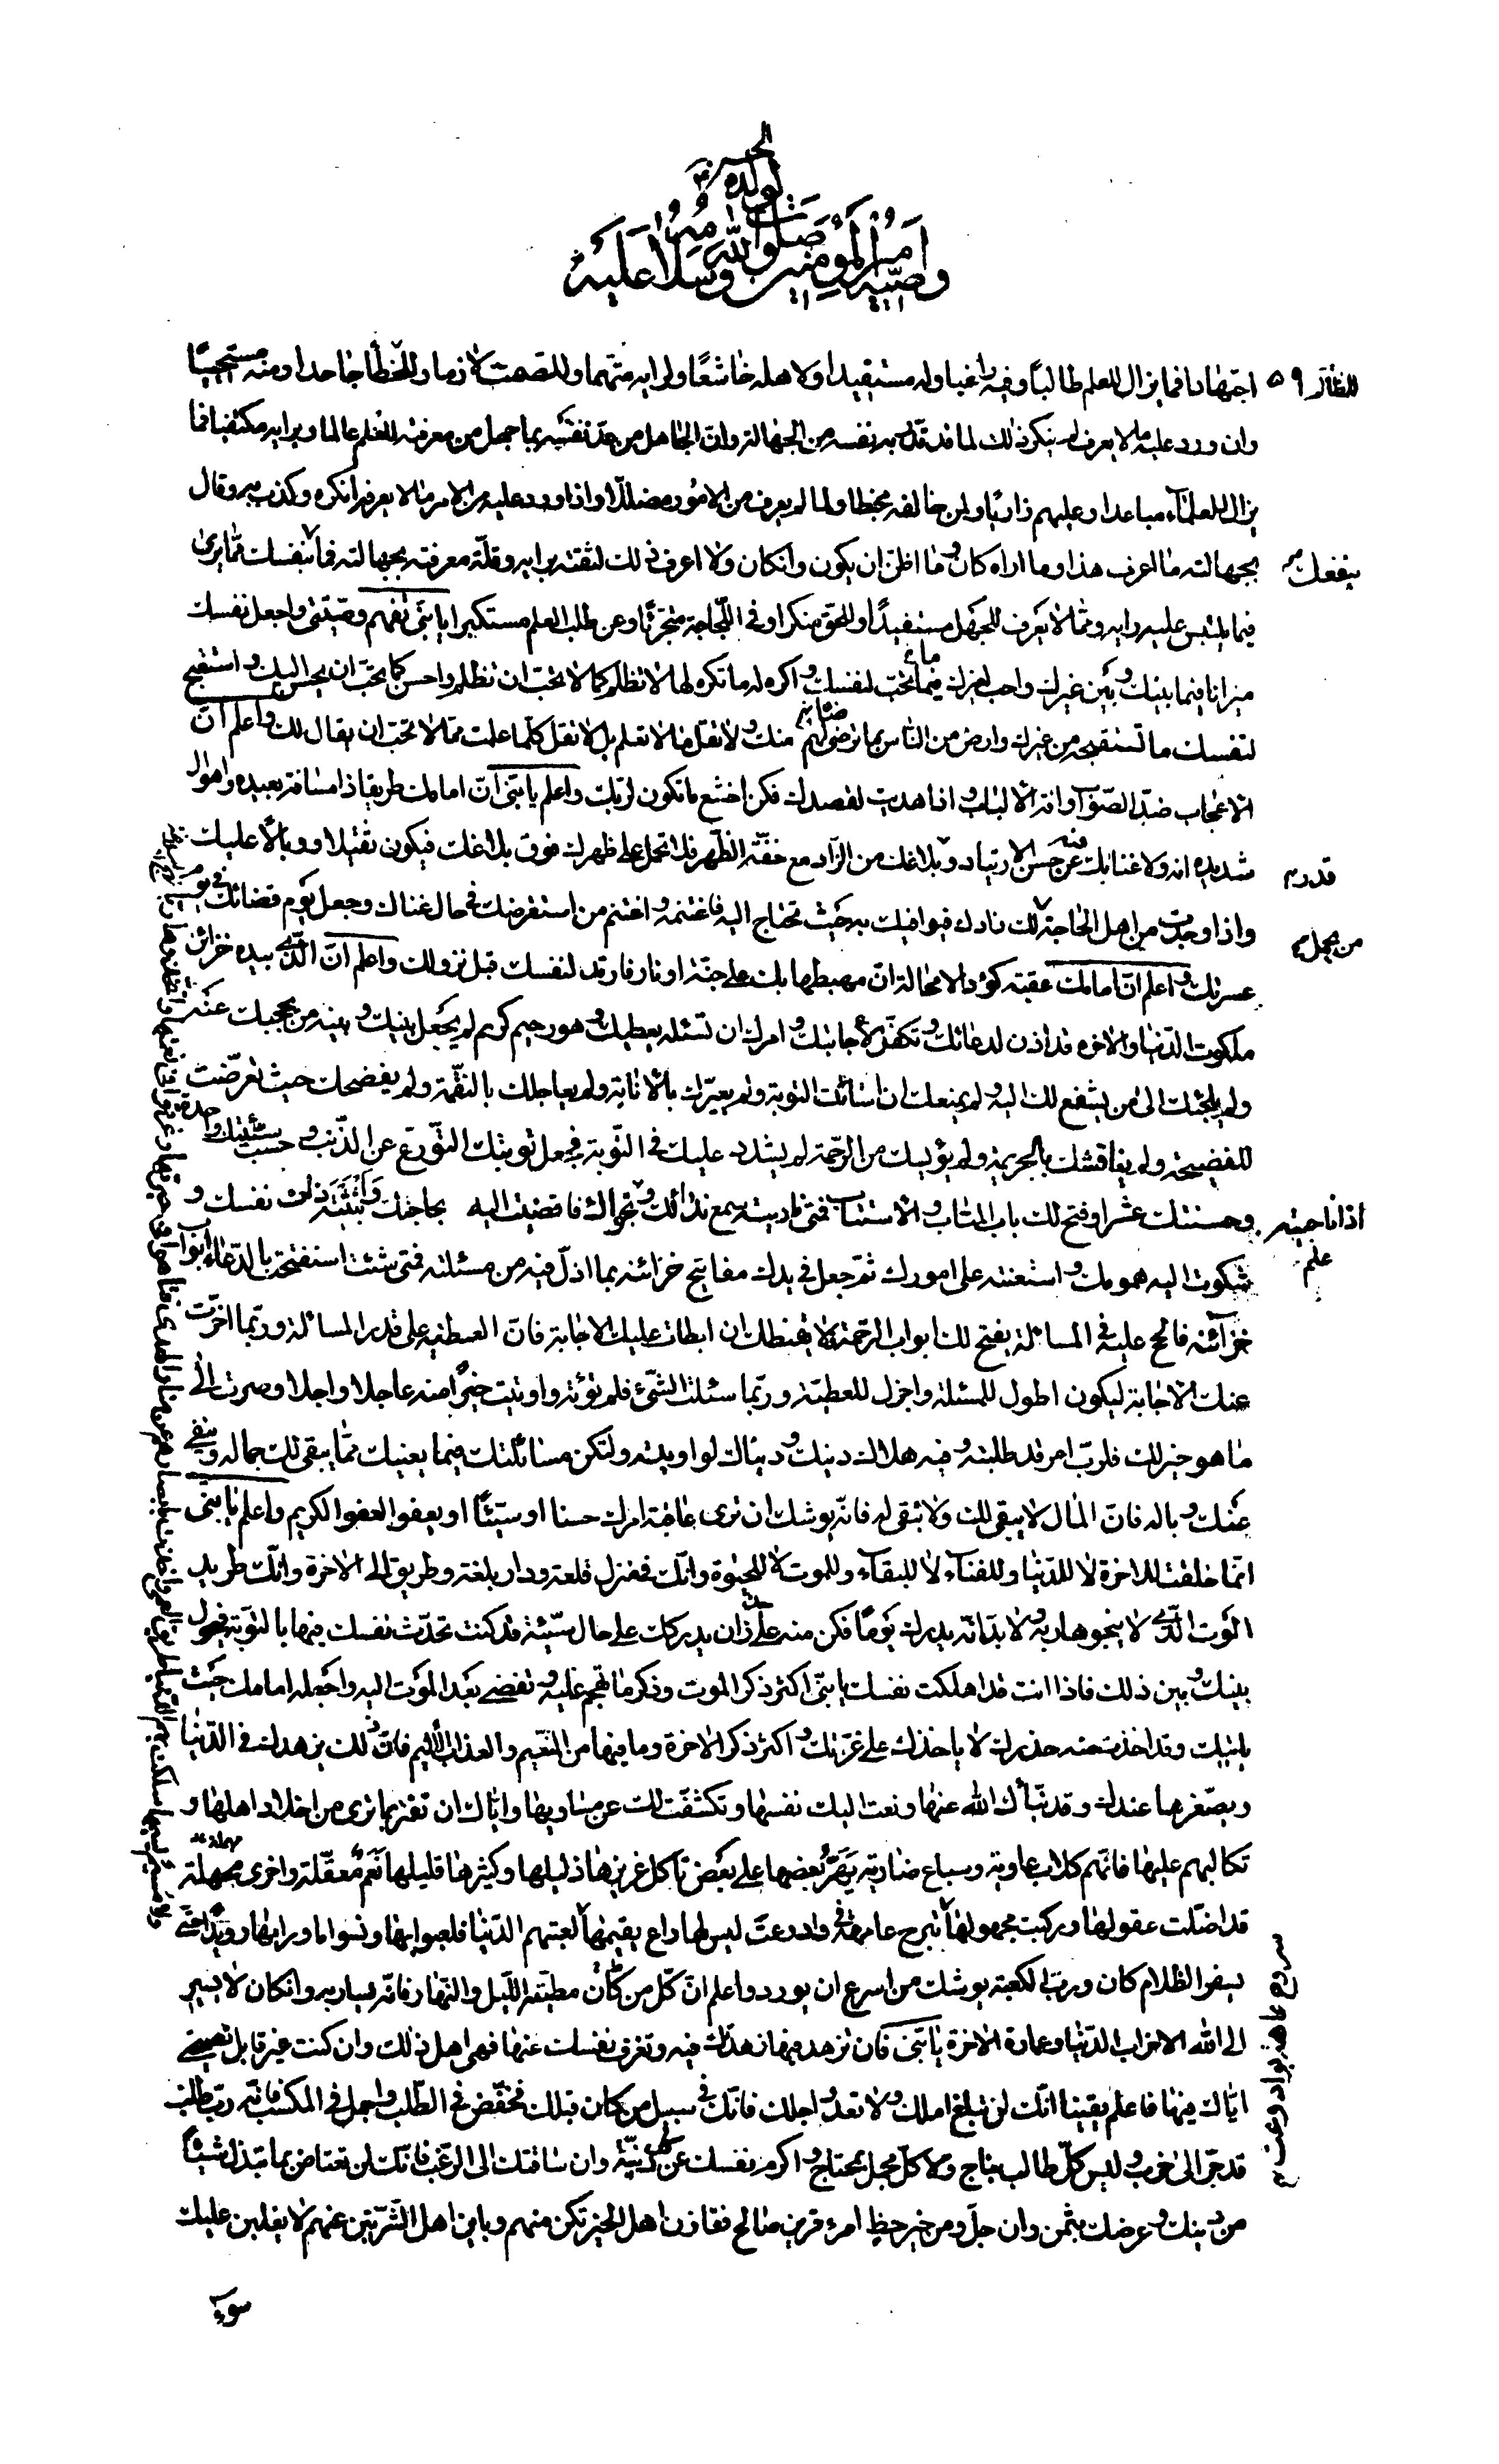 وصية امير المؤمنين صلوات الله وسلامه عليه
لولده الحسن
اجتهادا فما يزال للعلم طالبا وفيه راغبا وله مستفيدا ولاهله خاشعًا ولرايه متهما وللصمت لازما وللخطأ جاحدا ومنه مستحييًا
وان ورد عليه ما لا يعرف لم ينكر ذلك لما قد قرر به نفسه من الجهالة وان الجاهل من عد نفسه بما جهل من معرفته للعلم عالما وبرايه مكتفيا فما
يزال للعلماء مباعدا وعليهم زاريًا ولمن خالفه مخطئا ولما لم يعرف من الامور مضللا واذا ورد عليه من الامر ما لا يعرفه انكره وكذب به وقال
بجهالته ما اعرف هذا وما اراه كان وما اظن ان يكون وانى كان ولا اعرف ذلك لثقته برايه وقلة معرفته بجهالته فما ينفك مما يرى
فيما يلتبس عليه رايه ومما لا يعرف للجهل مستفيدًا وللحق منكرا وفي اللجاجة متجرئًا وعن طلب العلم مستكبرا يا بنى تفهم وصيتى واجعل نفسك
ميزانا فيما بينك وبين غيرك واحب لغيرك ما تحب لنفسك واكره له ما تكره لها لا تظلم كما لا تحب ان تظلم واحسن كما تحب ان يحسن اليك واستقبح
لنفسك ما تستقبحه من غيرك وارض من الناس بما ترضى لهم منك ولا تقل ما لا تعلم بل لا تقل كلما علمت مما لا تحب ان يقال لك واعلم ان
الاعجاب ضد الصواب وافة الالباب واذا هديت لقصدك فكن اخشع ما تكون لربك واعلم يا بنى ان امامك طريقا ذا مسافة بعيده واهوال
شديده انه ولا غنا بك فيه عن حسن الارتياد وبلاغك من الزاد مع خفة الظهر فلا تحمل على ظهرك فوق بلاغك فيكون ثقيلا ووبالًا عليك
واذا وجدت من اهل الحاجة من يحمل لك زادك فيوافيك به حيث تحتاج اليه فاغتنمه واغتنم من استقرضك في حال غناك وجعل يوم قضائك في يوم
عسرتك واعلم ان امامك عقبة كؤدا لا محالة ان مهبطها بك على جنة او نار فارتد لنفسك قبل نزولك واعلم ان الذي بيده خزائن
ملكوت الدنيا والاخره قد اذن لدعائك وتكفل لاجابتك وامرك ان تسئله يعطيك وهو رحيم كريم لم يجعل بينك وبينه من يحجبك عنه
ولم يلجئك الى من يشفع لك اليه ولم يمنعك ان اسائت التوبة ولم يعيرك بالانابة ولم يعاجلك بالنقمة ولم يفضحك حيث تعرضت
للفضيحة ولم يناقشك بالجريمة ولم يؤيسك من الرحمة لم يشدد عليك في التوبة فجعل توبتك التورع عن الذنب وحسب سيئتك واحدة
وحسنتك عشرا وفتح لك باب المتاب والاستيناف فمتى ناديته سمع ندائك ونجواك فافضيت اليه بحاجتك وابثثته ذات نفسك و
شكوت اليه همومك واستعنته على امورك ثم جعل في يدك مفاتيح خزائنه بما اذن فيه من مسئلته فمتى شئت استفتحت بالدعاء ابواب
خزائنه فالح عليه في المسائلة يفتح لك ابواب الرحمة لا يقنطك ان ابطات عليك الاجابة فان العطية على قدر المسائلة وربما اخرت
عنك الاجابة ليكون اطول للمسئلة واجزل للعطية وربما سئلت الشئ فلم تؤته واوتيت خيرًا منه عاجلا واجلا وصرت الى
ما هو خير لك فلرب امر قد طلبته وفيه هلاك دينك ودنياك لو اوتيته ولتكن مسائلتك فيما يعنيك مما يبقى لك جماله وينفي
عنك وباله فان المال لا يبقى لك ولا تبقى له فانه يوشك ان ترى عاقبة امرك حسنا او سيئًا او يعفو العفو الكريم واعلم يا بنى
انما خلقت للاخرة لا للدنيا وللفناء لا للبقاء وللموت لا للحيوة وانك في منزل قلعة ودار بلغة وطريق الى الاخرة وانك طريد
الموت الذي لا ينجو هاربه ولا بد انه يدرك يومًا فكن منه على حذر ان يدركك على حال سيئة قد كنت تحدث نفسك فيها بالتوبة فيحول
بينك وبين ذلك فاذا انت قد اهلكت نفسك يا بنى اكثر ذكر الموت وذكر ما تهجم عليه وتفضى بعد الموت اليه واجعله امامك حيث
ياتيك وقد اخذت منه حذرك لا ياخذك على غرتك واكثر ذكر الاخرة وما فيها من النعيم والعذاب الاليم فان ذلك يزهدك في الدنيا
ويصغرها عندك وقد نبأك الله عنها ونعت اليك نفسها وتكشفت لك عن مساويها واياك ان تغتر بما ترى من اخلاد اهلها و
تكالبهم عليها فانهم كلاب عاوية وسباع ضارية يهر بعضها على بعض تاكل عزيزها ذليلها وكثيرها قليلها نعم معقلة واخرى مهملة
قد اضلت عقولها وركبت مجهولها سرح عاهة بواد وعث ليس لها راع يقيمها لعبت بهم الدنيا فلعبوا بها ونسوا ما وراءها رويدًا حتى
يسفر الظلام كان ورب الكعبة يوشك من اسرع ان يورد واعلم ان كل من كان مطيته الليل والنهار فانه يسار به وان كان لا يسير
الى الله الا خراب الدنيا وعمارة الاخرة يا بنى فان تزهد فيما زهدتك فيه وتعزف نفسك عنها فهي اهل ذلك وان كنت غير قابل نصيحتي
اياك فيها فاعلم يقينا انك لن تبلغ املك ولا تعدو اجلك فانك في سبيل من كان قبلك فخفض في الطلب واجمل في المكتسب فانه رب طلب
قد جر الى حرب وليس كل طالب بناج ولا كل مجمل بمحتاج واكرم نفسك عن كل دنية وان ساقتك الى الرغب فانك لن تعتاض بما تبذل شيئًا
من دينك وعرضك بثمن وان جل ومن خير حظ امرء قرين صالح فقارن اهل الخير تكن منهم وباين اهل الشر تبن عنهم لا يغلبن عليك
سوء
ينفك
قدر
من يحمل
اذا ناجيته
علم
سرح عاهة بواد وعث